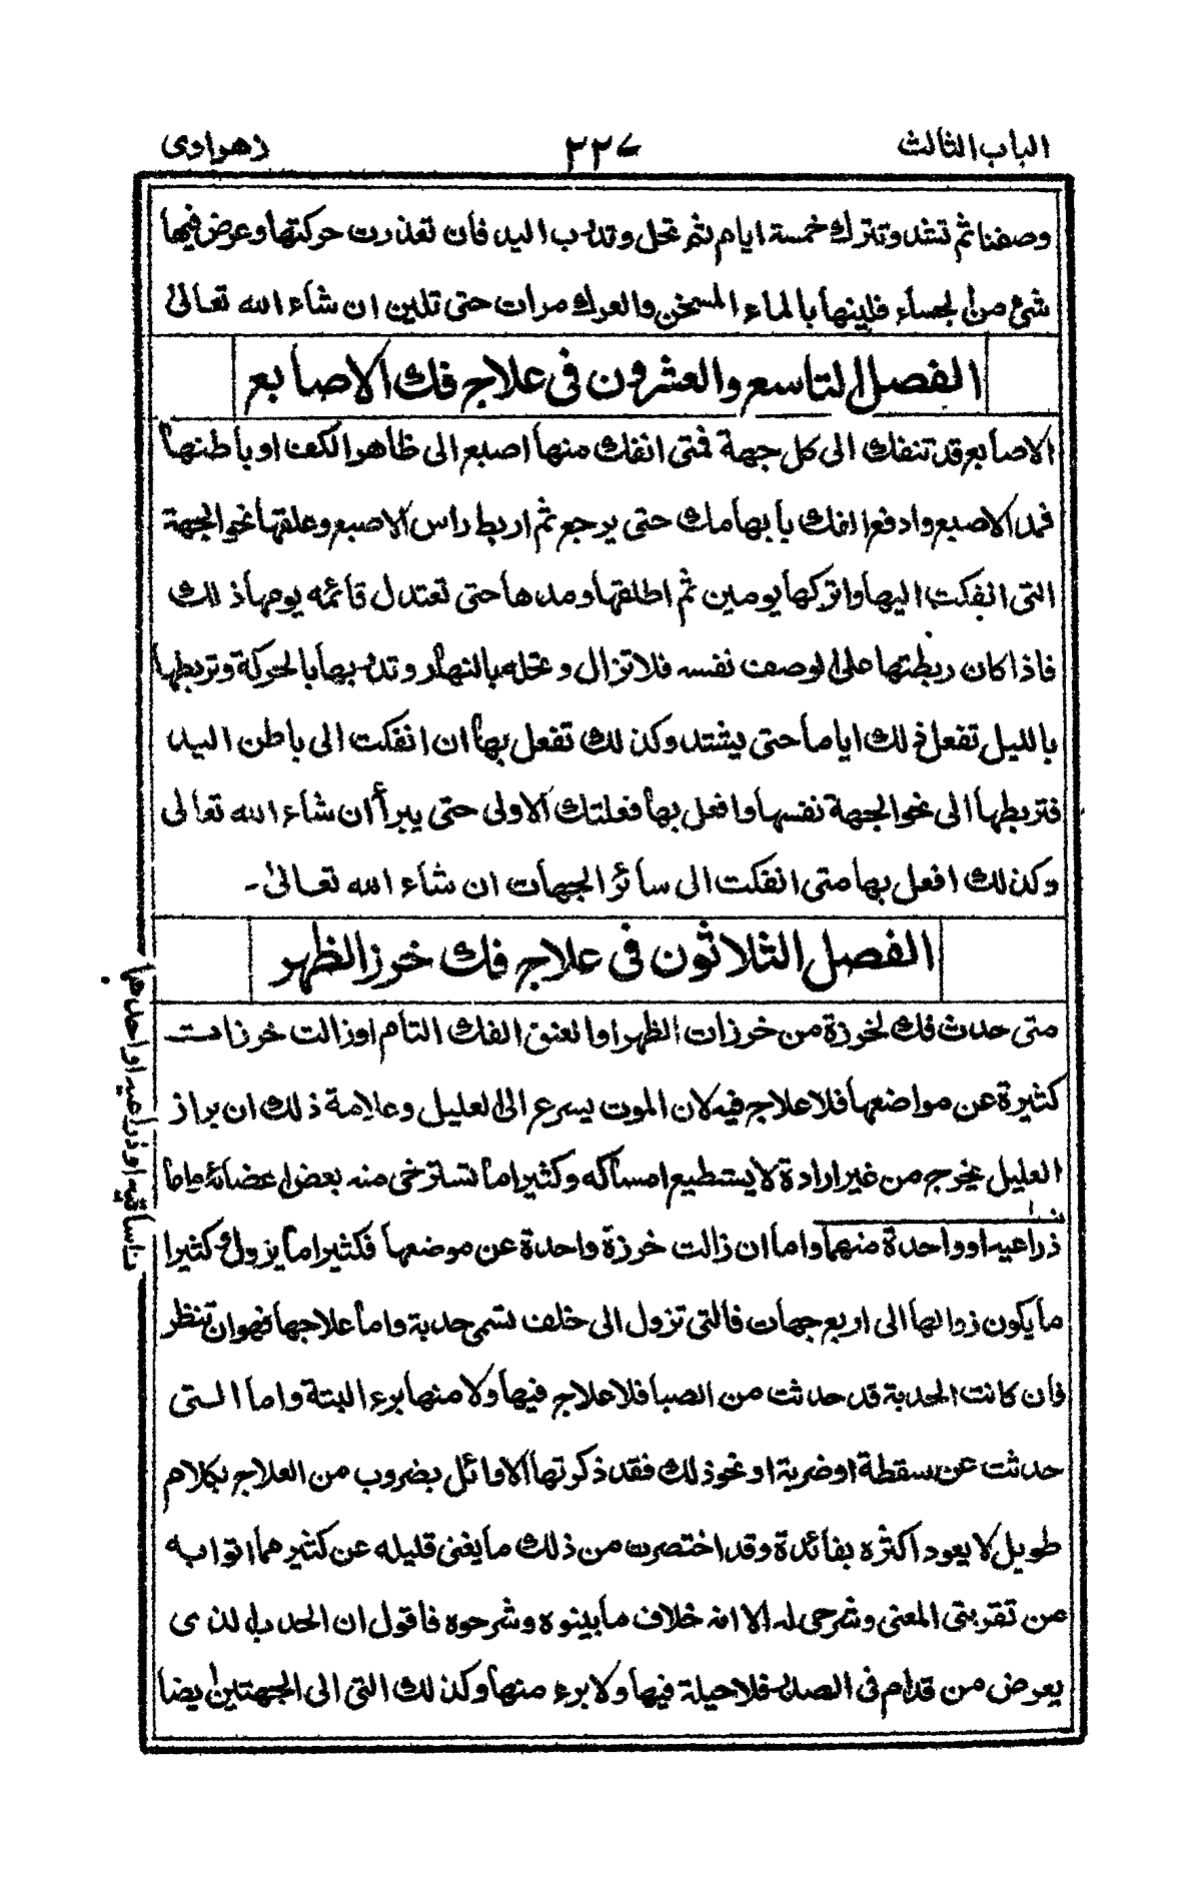 الباب الثالث ٢٢٧ زهراوى
وصفنا ثم تشد وتترك خمسة ايام ثم تحل وتدرب اليد فان تعذرت حركتها وعرض فيها
شئ من الجساء فلينها بالماء المسخن والعرك مرات حتى تلين ان شاء الله تعالى
الفصل التاسع والعشرون فى علاج فك الاصابع
الاصابع قد تنفك الى كل جهة فمتى انفك منها اصبع الى ظاهر الكف او باطنها
فمد الاصبع وادفع الفك بابهامك حتى يرجع ثم اربط راس الاصبع وعلقها نحو الجهة
التى انفكت اليها واتركها يومين ثم اطلقها ومدها حتى تعتدل قائمه يومها ذلك
فاذا كان ربطتها على الوصف نفسه فلا تزال وتحله بالنهار وتدربها بالحركة وتربطها
بالليل تفعل ذلك اياما حتى يشتد وكذلك تفعل بها ان انفكت الى باطن اليد
فتربطها الى نحو الجهة نفسها وافعل بها فعلتك الاولى حتى يبرأ ان شاء الله تعالى
وكذلك افعل بها متى انفكت الى سائر الجهات ان شاء الله تعالى۔
الفصل الثلاثون فى علاج فك خرز الظهر
متى حدث فك لخرزة من خرزات الظهر او العنق الفك التام او زالت خرزات
كثيرة عن مواضعها فلا علاج فيه لان الموت يسرع الى العليل وعلامة ذلك ان براز
العليل يخرج من غير ارادة لا يستطيع امساكه وكثيرا ما تسترخى منه بعض اعضائه اما
ذراعيه او واحدة منهما واما ان زالت خرزة واحدة عن موضعها فكثيرا ما يزول وكثيرا
ما يكون زوالها الى اربع جهات فالتى تزول الى خلف تسمى حدبة واما علاجها فهو ان تنظر
فان كانت الحدبة قد حدثت من الصبا فلا علاج فيها ولا منها برء البتة واما التى
حدثت عن سقطة او ضربة او نحو ذلك فقد ذكرتها الاوائل بضروب من العلاج بكلام
طويل لا يعود اكثره بفائدة وقد اختصرت من ذلك ما يغنى قليله عن كثير هما اتوا به
من تقربتى المعنى وشرحى له الا انه خلاف ما بينوه وشرحوه فاقول ان الحدب الذى
يعرض من قدام فى الصدر فلا حيلة فيها ولا برء منها وكذلك التى الى الجهتين ايضا
ساقيه او ذراعيه او احدهما